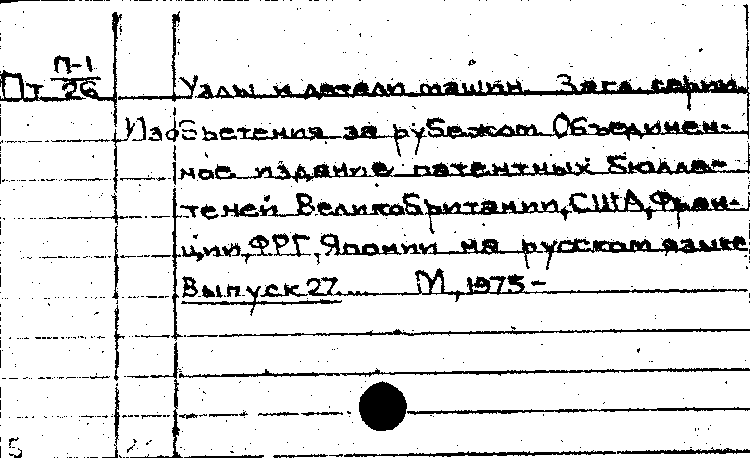 Пт П-1/26 Узлы и детали машин. Загл. серии.
Изобретения за рубежом. Объединен-
ное издание патентных бюлле-
теней Великобритании, США, Фран-
ции, ФРГ, Японии на русском языке
Выпуск 27... М., 1975-
5